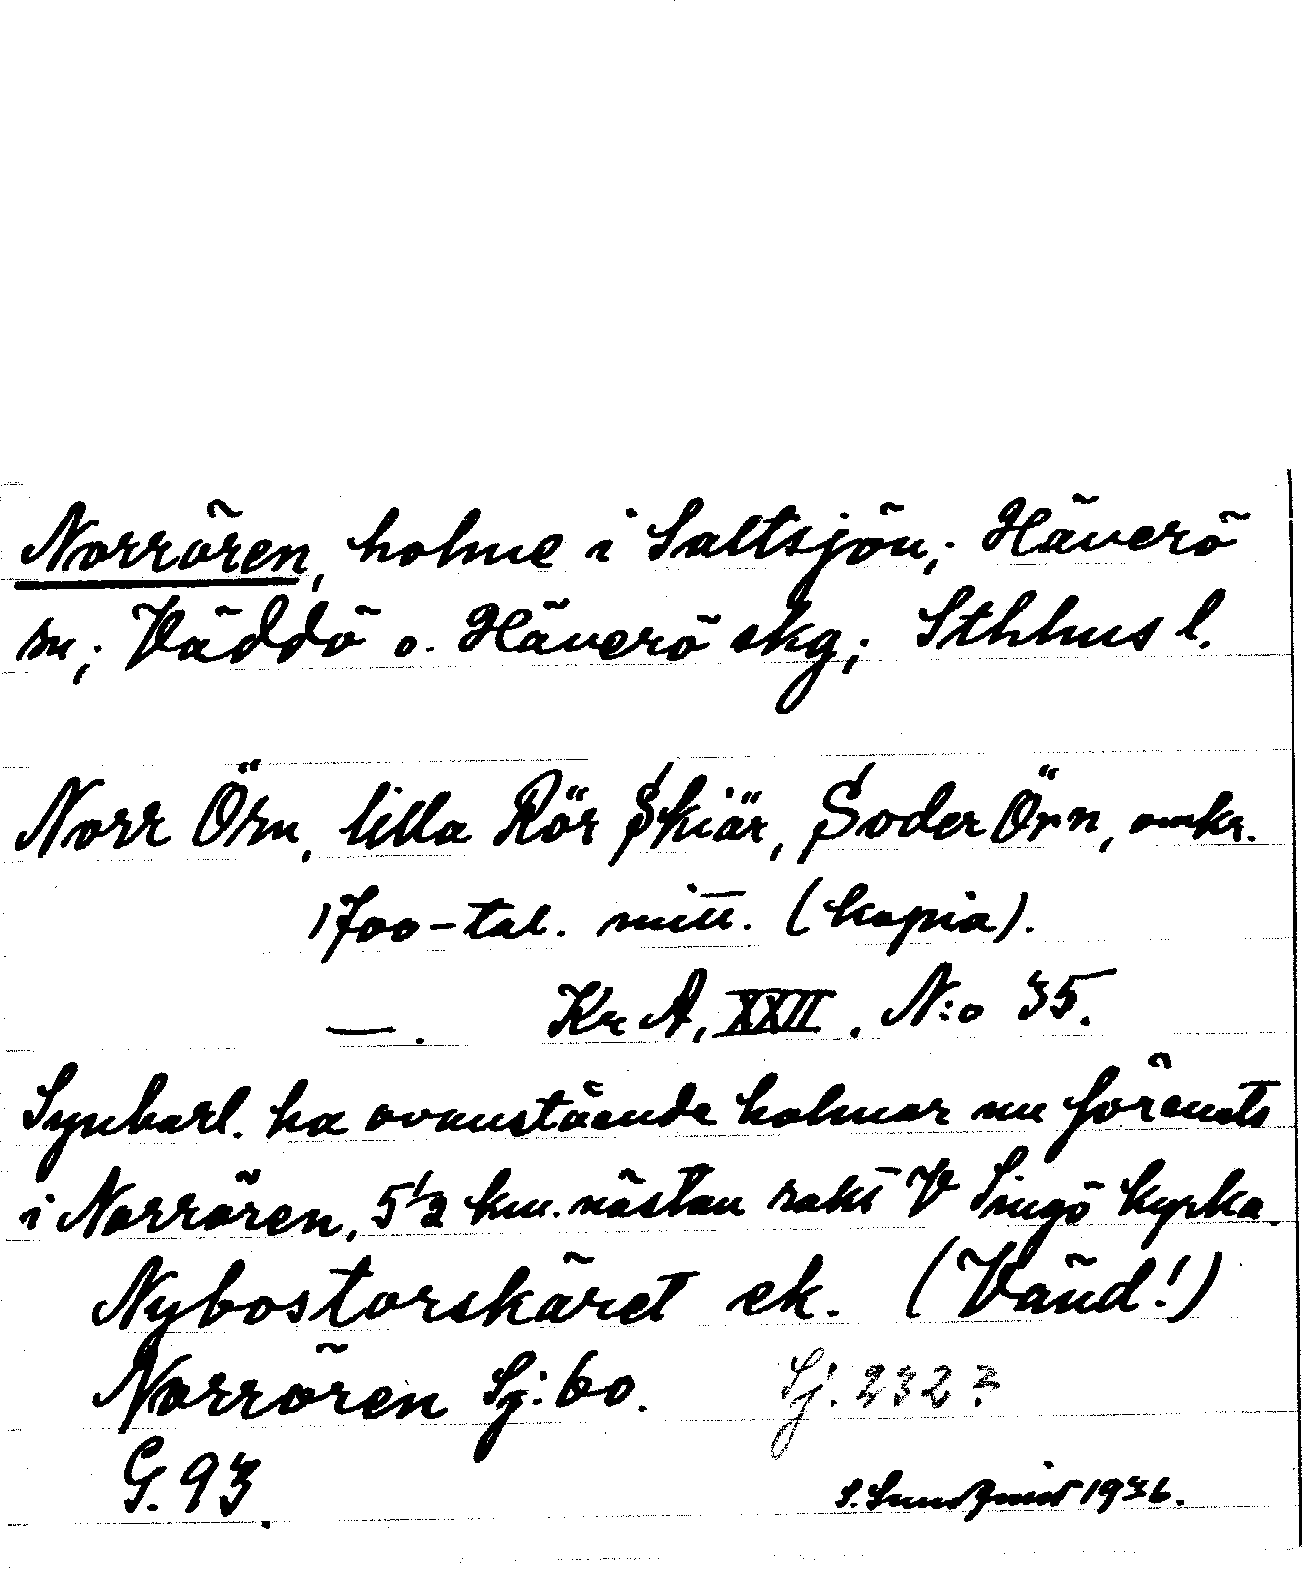 Norrören, holme i Saltsjön; Häverö
sn; Väddö o. Häverö skg; Sthlms l.
Norr Örn, lilla Rör Skiär, Soder Örn, omkr.
1700-tal. mitt. (kopia).
—. KrA, XXII. N:o 35.
Synbarl. ha ovanstående holmar nu förenats
i Norrören, 5 1/2 km. nästan rakt V Singö kyrka.
Nybostorskäret ek. (Vänd!)
Norrören Sj: 60. Sj. 232?
G. 93.
S. Sundquist 1936.